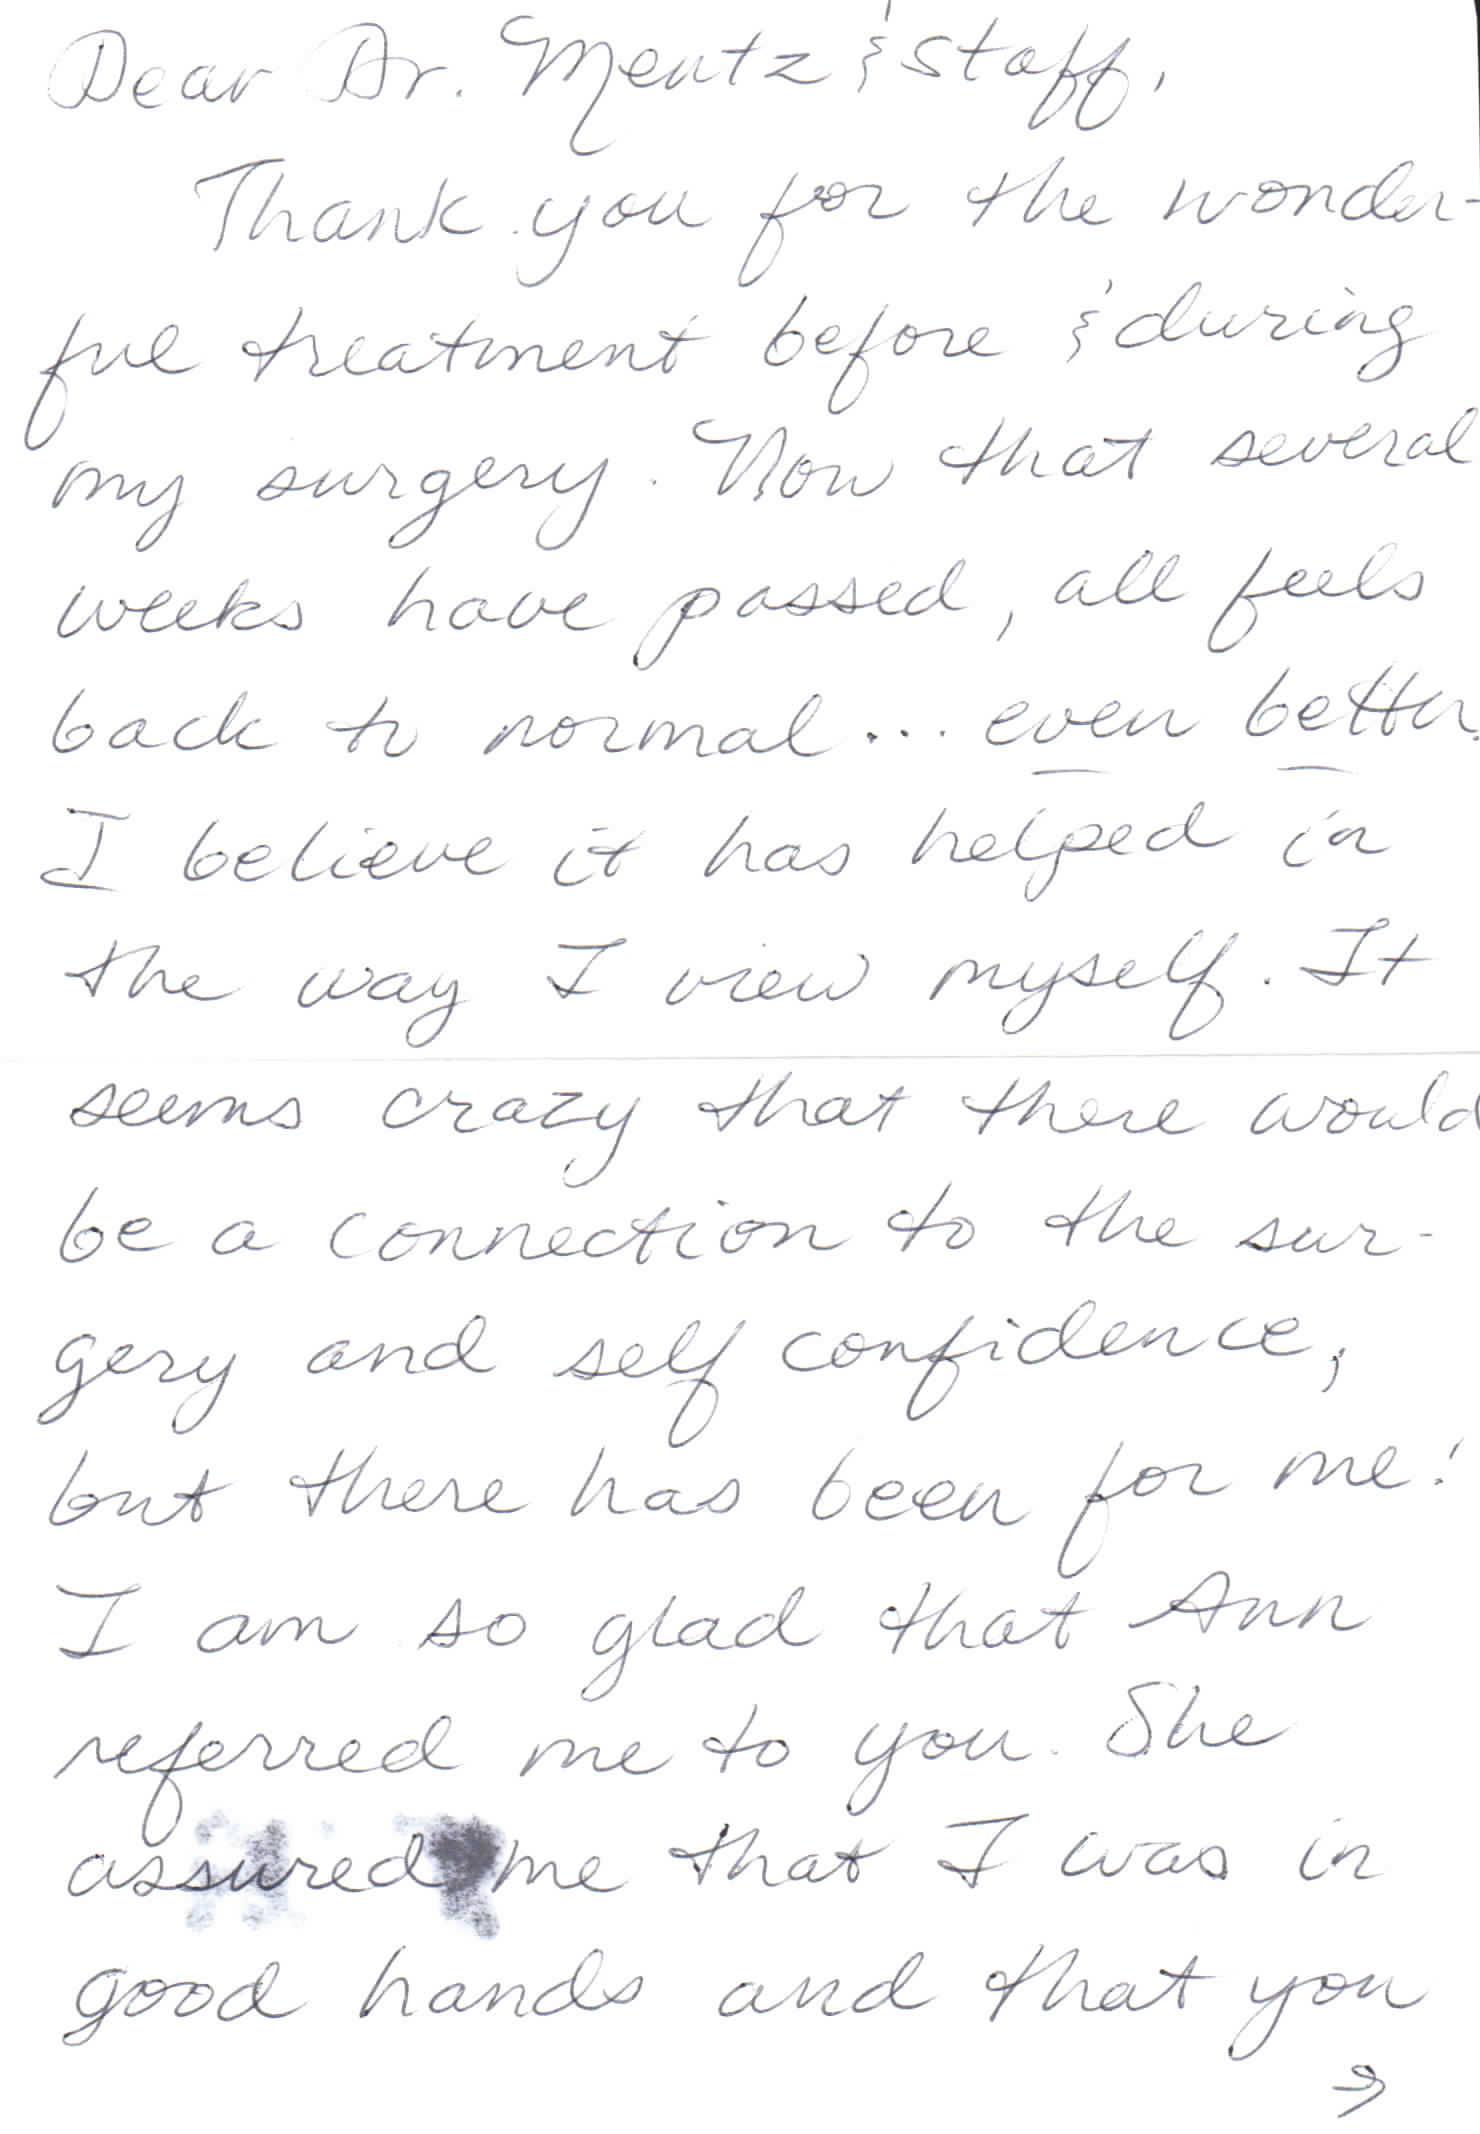 Dear Dr. Mentz & staff,
Thank you for the wonder-
ful treatment before & during
my surgery. Now that several
weeks have passed, all feels
back to normal... even better.
I believe it has helped in
the way I view myself. It
seems crazy that there would
be a connection to the sur-
gery and self confidence,
but there has been for me!
I am so glad that Ann
referred me to you. She
assured me that I was in
good hands and that you
→